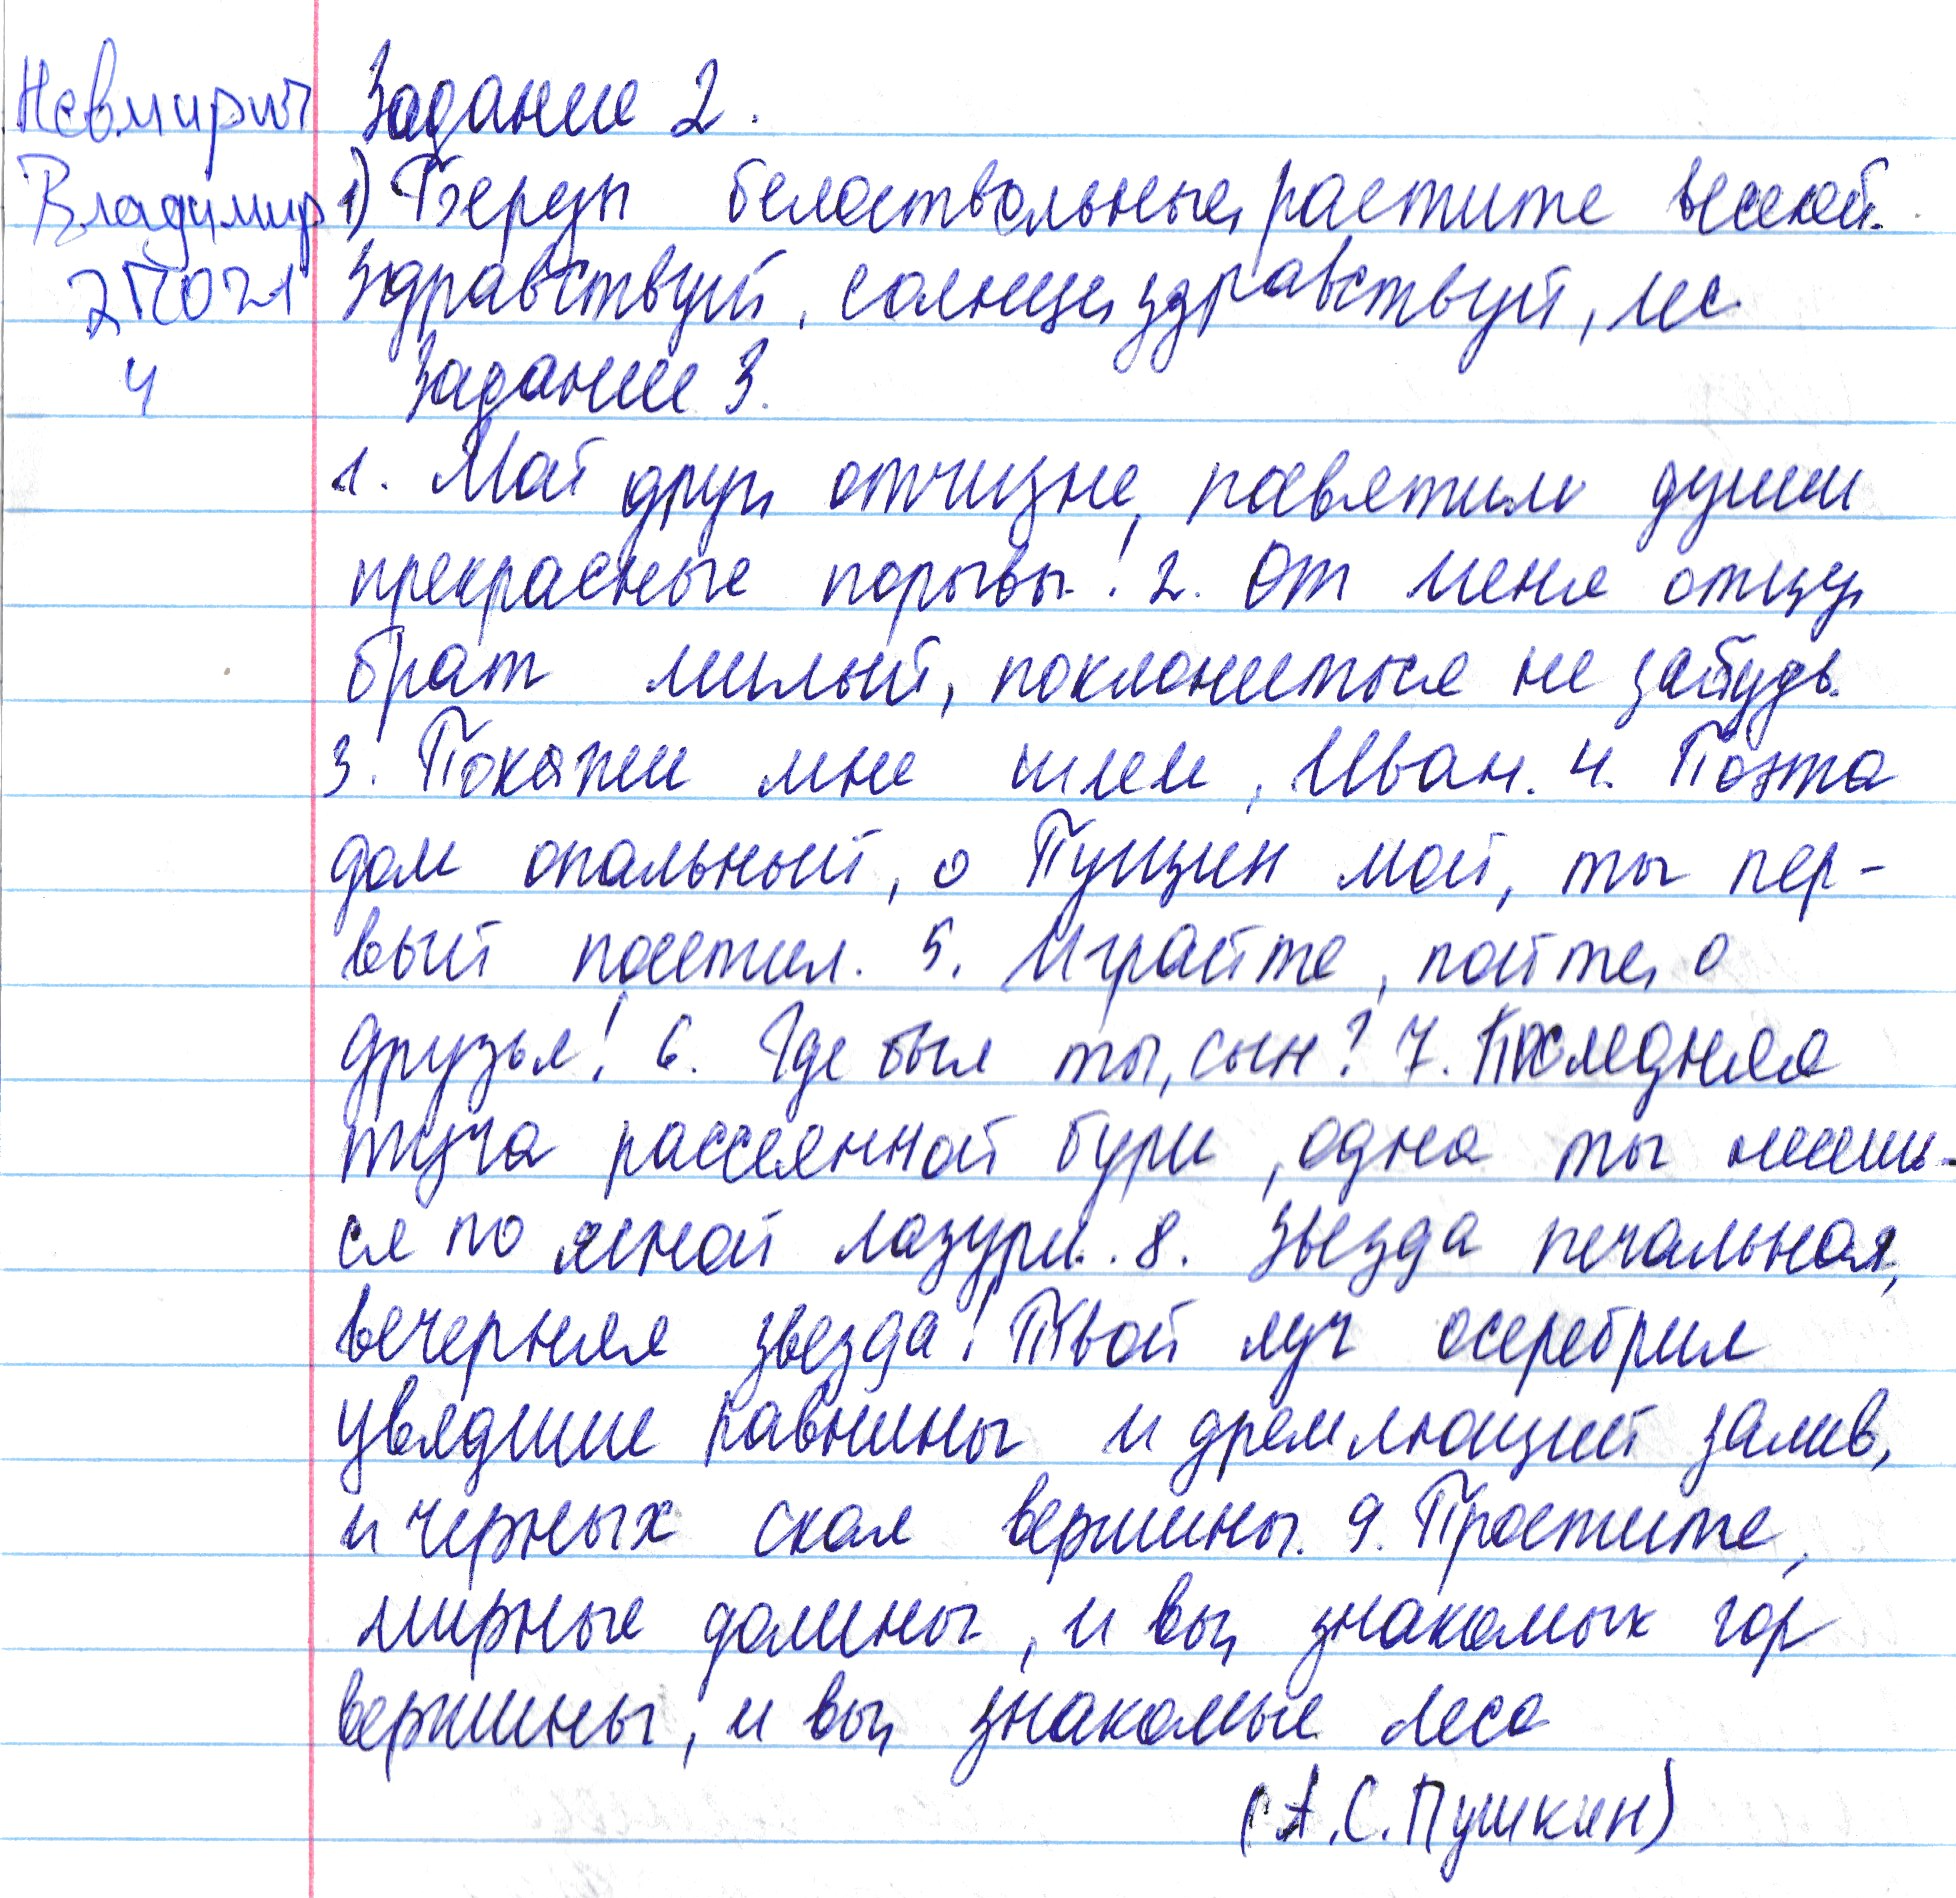 Невмирич
Владимир
2ПО21
4
Задание 2.
1) Березы белоствольные, растите весной.
Здравствуй, солнце, здравствуй, лес
Задание 3.
1. Мой друг, отчизне, посвятим души
прекрасные порывы! 2. От меня отцу,
брат милый, поклониться не забудь.
3. Покажи мне шлем, Иван. 4. Поэта
дом опальный, о Пущин мой, ты пер-
вый посетил. 5. Играйте, пойте, о
друзья! 6. Где был ты, сын? 7. Последняя
туча рассеянной бури, одна ты несешь-
ся по ясной лазури. 8. Звезда печальная,
вечерняя звезда! Твой луч осеребрил
увядшие равнины и дремлющий залив,
и черных скал вершины. 9. Простите,
мирные долины, и вы, знакомых гор
вершины, и вы, знакомые леса
(А.С.Пушкин)